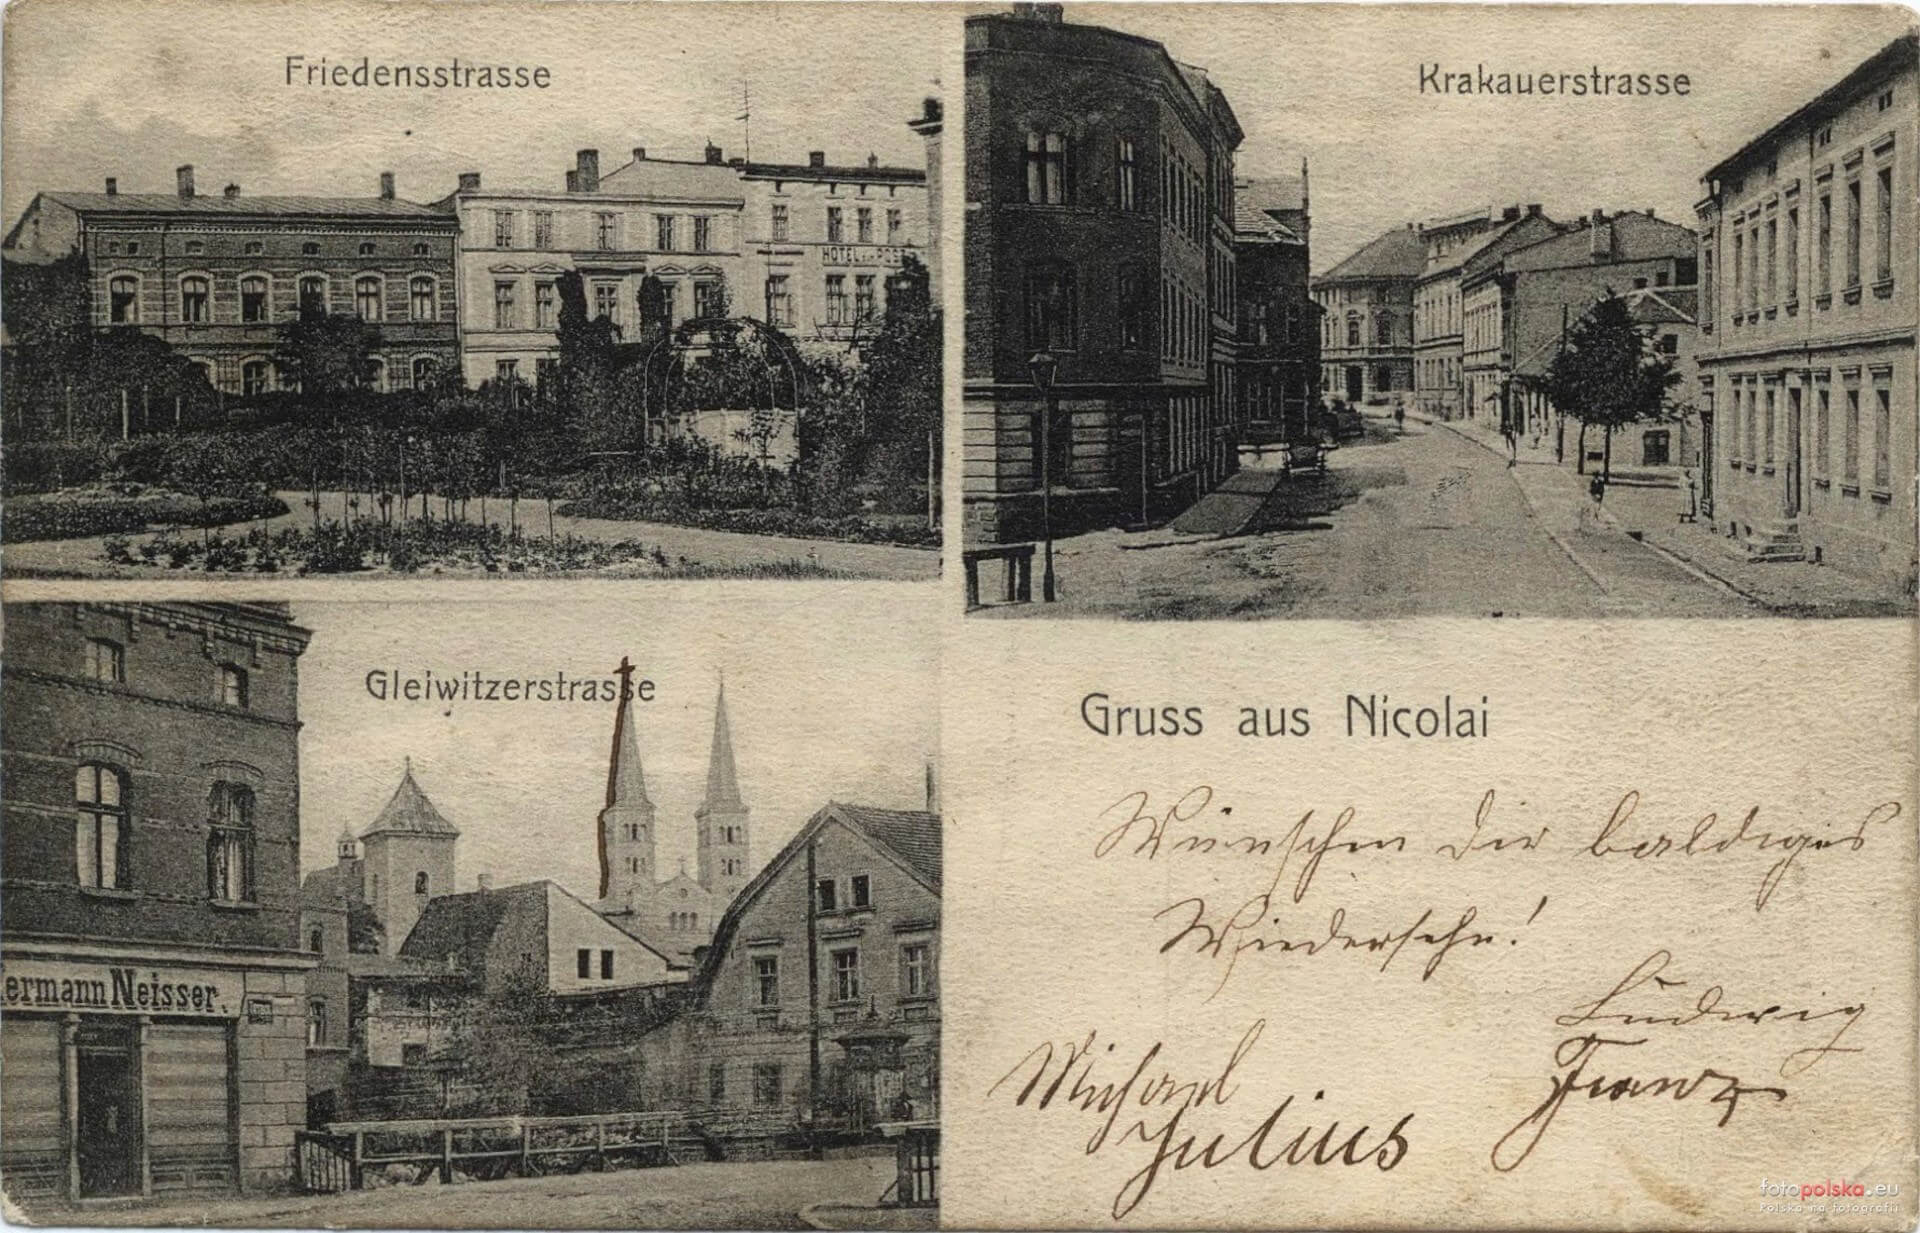 Friedensstrasse
HOTEL
Krakauerstrasse
Gleiwitzerstrasse
ermann Neisser.
Gruss aus Nicolai
Wünschen dir baldiges
Wiedersehn!
Ludwig
Franz
Michael
Julius
fotopolska.eu
Polska na fotografii